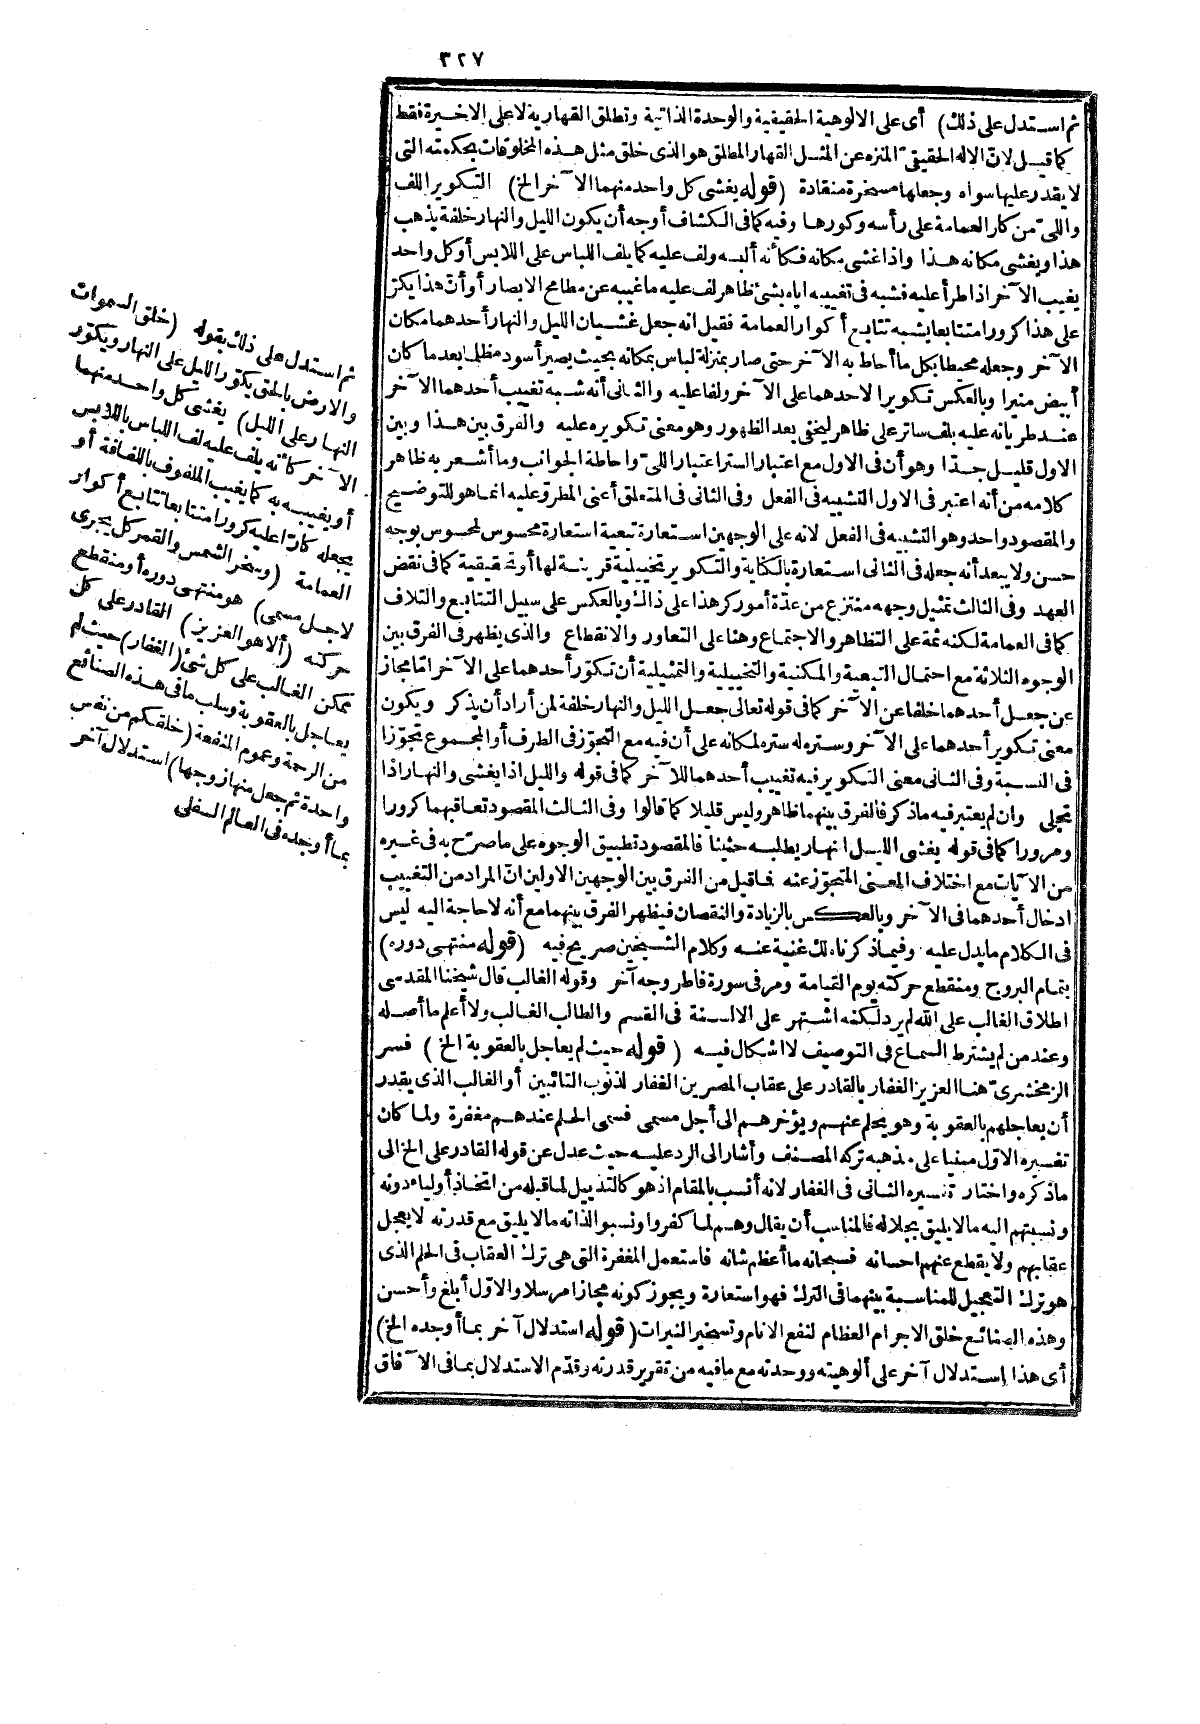 ٣٢٧
ثم استدل على ذلك) أى على الالوهية الحقيقية والوحدة الذاتية وتطلق القهارية لا على الاخيرة فقط
كما قيل لان الاله الحقيقىّ المنزه عن المثل القهار المطلق هو الذى خلق مثل هذه المخلوقات بحكمته التى
لا يقدر عليها سواه وجعلها مسخرة منقادة (قوله يغشى كل واحد منهما الآخر الخ) التكوير اللف
واللىّ من كار العمامة على رأسه وكورها وفيه كما فى الكشاف أوجه أن يكون الليل والنهار خلفة يذهب
هذا ويغشى مكانه هذا واذا غشى مكانه فكأنه ألبسه ولف عليه كما يلف اللباس على اللابس أو كل واحد
يغيب الآخر اذا طرأ عليه فشبه فى تغييبه اياه بشئ ظاهر لف عليه ما غيبه عن مطامح الابصار أو أن هذا يكرّ
على هذا كرورا متتابعا يشبه تتابع أكوار العمامة فقيل انه جعل غشيان الليل والنهار أحدهما مكان
الآخر وجعله محيطا بكل ما أحاط به الآخر حتى صار بمنزلة لباس بمكانه بحيث يصير أسود مظلما بعد ما كان
أبيض منيرا وبالعكس تكويرا لاحدهما على الآخر ولفا عليه والثانى أنه شبه تغييب أحدهما الآخر
عند طريانه عليه بلف ساتر على ظاهر ليخفى بعد الظهور وهو معنى تكويره عليه والفرق بين هذا وبين
الاول قليل جدّا وهو أن فى الاول مع اعتبار الستر اعتبار اللىّ واحاطة الجوانب وما أشعر به ظاهر
كلامه من أنه اعتبر فى الاول التشبيه فى الفعل وفى الثانى فى المتعلق أعنى المطرو عليه انما هو للتوضيح
والمقصود واحد وهو التشبيه فى الفعل لانه على الوجهين استعارة تبعية استعارة محسوس لمحسوس بوجه
حسن ولا يبعد أنه جعله فى الثانى استعارة بالكناية والتكوير تخييلية قرينة لها أو تحقيقية كما فى نقض
العهد وفى الثالث تمثيل وجهه منتزع من عدّة أمور كر هذا على ذاك وبالعكس على سبيل التتابع والتلاف
كما فى العمامة لكنه ثمة على التظاهر والاجتماع وهنا على التعاور والانقطاع والذى يظهر فى الفرق بين
الوجوه الثلاثة مع احتمال التبعية والمكنية والتخييلية والتمثيلية أن تكوّر أحدهما على الآخر امّا مجاز
عن جعل أحدهما خلفا عن الآخر كما فى قوله تعالى جعل الليل والنهار خلفة لمن أراد أن يذكر ويكون
معنى تكوير أحدهما على الآخر وستره له ستره لمكانه على أن فيه مع التجوّز فى الطرف أو المجموع تجوّزا
فى النسبة وفى الثانى معنى التكوير فيه تغييب أحدهما للآخر كما فى قوله والليل اذا يغشى والنهار اذا
تجلى وان لم يعتبر فيه ماذكر فالفرق بينهما ظاهر وليس قليلا كما قالوا وفى الثالث المقصود تعاقبهما كرورا
ومرورا كما فى قوله يغشى الليل النهار يطلبه حثيثا فالمقصود تطبيق الوجوه على ما صرّح به فى غيره
من الآيات مع اختلاف المعنى المتجوّز عنه فما قيل من الفرق بين الوجهين الاولين ان المراد من التغييب
ادخال أحدهما فى الآخر وبالعكس بالزيادة والنقصان فيظهر الفرق بينهما مع أنه لا حاجة اليه ليس
فى الكلام ما يدل عليه وفيما ذكرناه لك غنية عنه وكلام الشيخين صريح فيه (قوله منتهى دوره)
بتمام البروج ومنقطع حركته يوم القيامة ومر فى سورة فاطر وجه آخر وقوله الغالب قال شيخنا المقدسى
اطلاق الغالب على الله لم يرد لكنه اشتهر على الالسنة فى القسم والطالب الغالب ولا أعلم ما أصله
وعند من لم يشترط السماع فى التوصيف لا اشكال فيه (قوله حيث لم يعاجل بالعقوبة الخ) فسر
الزمخشرىّ هنا العزيز الغفار بالقادر على عقاب المصرين الغفار لذنوب التائبين أو الغالب الذى يقدر
أن يعاجلهم بالعقوبة وهو يحلم عنهم ويؤخرهم الى أجل مسمى فسمى الحلم عندهم مغفرة ولما كان
تفسيره الاوّل مبنيا على مذهبه تركه المصنف وأشار الى الرد عليه حيث عدل عن قوله القادر على الخ الى
ما ذكره واختار تفسيره الثانى فى الغفار لانه أنسب بالمقام اذ هو كالتذييل لما قبله من اتخاذ أولياء دونه
ونسبتهم اليه ما لا يليق بجلاله فالمناسب أن يقال وهم لما كفروا ونسبوا لذاته ما لا يليق مع قدرته لا يعجل
عقابهم ولا يقطع عنهم احسانه فسبحانه ما أعظم شانه فاستعمل المغفرة التى هى ترك العقاب فى الحلم الذى
هو ترك التعجيل للمناسبة بينهما فى الترك فهو استعارة ويجوز كونه مجازا مرسلا والاوّل أبلغ وأحسن
وهذه الصنائع خلق الاجرام العظام لنفع الانام وتسخير النيرات (قوله استدلال آخر بما أوجده الخ)
أى هذا استدلال آخر على ألوهيته ووحدته مع ما فيه من تقرير قدرته وقدّم الاستدلال بما فى الآفاق
ثم استدل على ذلك بقوله (خلق السموات
والارض بالحق يكوّر الليل على النهار ويكوّر
النهار على الليل) يغشى كل واحد منهما
الآخر كأنه يلف عليه لف اللباس باللابس
أو يغيبه به كما يغيب الملفوف باللفافة أو
يجعله كارّا عليه كرورا متتابعا تتابع أكوار
العمامة (وسخر الشمس والقمر كل يجرى
لاجل مسمى) هو منتهى دوره أو منقطع
حركته (ألا هو العزيز) القادر على كل
ممكن الغالب على كل شئ (الغفار) حيث لم
يعاجل بالعقوبة وسلب ما فى هذه الصنائع
من الرحمة وعموم المنفعة (خلقكم من نفس
واحدة ثم جعل منها زوجها) استدلال آخر
بما أوجده فى العالم السفلى